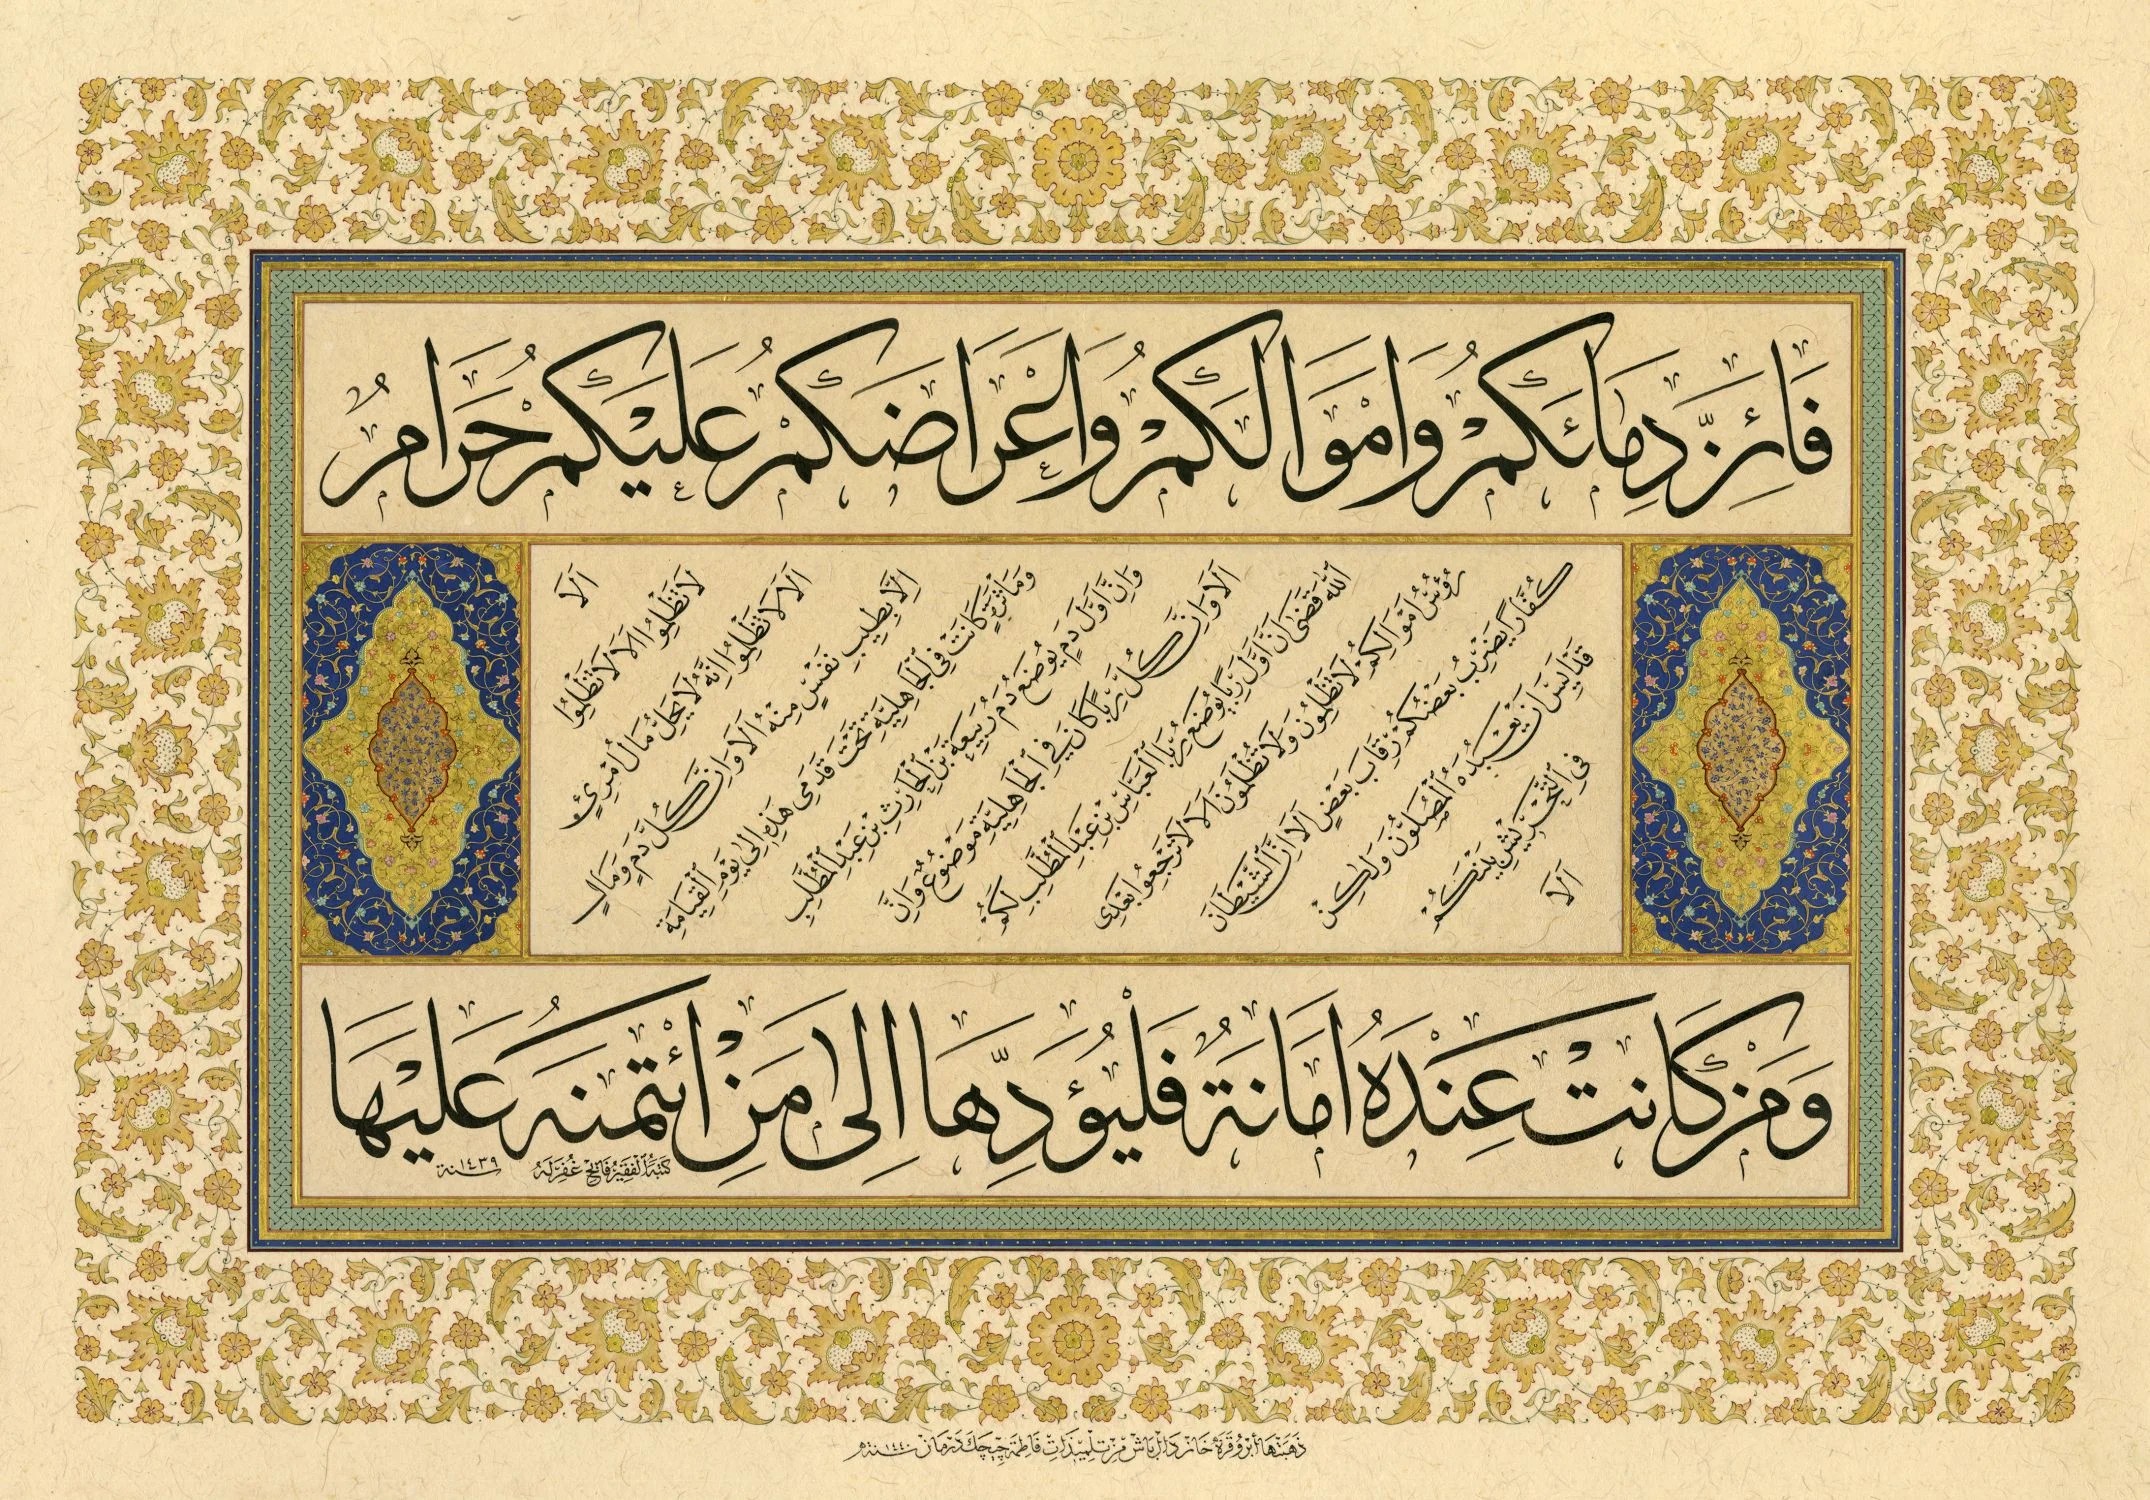 فَاِنَّ دِمَائَكُمْ وَاَمْوَالَكُمْ وَاَعْرَاضَكُمْ عَلَيْكُمْ حَرَامٌ
اَلَا
لَا تَظْلِمُوا اَلَا لَا تَظْلِمُوا
اَلَا لَا تَظْلِمُوا اِنَّهُ لَا يَحِلُّ مَالُ امْرِئٍ
اِلَّا بِطِيبِ نَفْسٍ مِنْهُ اَلَا وَاِنَّ كُلَّ دَمٍ وَمَالٍ
وَمَأْثَرَةٍ كَانَتْ فِي الْجَاهِلِيَّةِ تَحْتَ قَدَمِي هَذِهِ اِلَى يَوْمِ الْقِيَامَةِ
وَاِنَّ اَوَّلَ دَمٍ يُوضَعُ دَمُ رَبِيعَةَ بْنِ الْحَارِثِ بْنِ عَبْدِ الْمُطَّلِبِ
اَلَا وَاِنَّ كُلَّ رِبًا كَانَ فِي الْجَاهِلِيَّةِ مَوْضُوعٌ وَاِنَّ
اللّٰهَ قَضَى اَنَّ اَوَّلَ رِبًا يُوضَعُ رِبَا الْعَبَّاسِ بْنِ عَبْدِ الْمُطَّلِبِ لَكُمْ
رُؤُسُ اَمْوَالِكُمْ لَا تَظْلِمُونَ وَلَا تُظْلَمُونَ اَلَا لَا تَرْجِعُوا بَعْدِي
كُفَّارًا يَضْرِبُ بَعْضُكُمْ رِقَابَ بَعْضٍ اَلَا اِنَّ الشَّيْطَانَ
قَدْ اَيِسَ اَنْ يَعْبُدَهُ الْمُصَلُّونَ وَلَكِنْ
فِي التَّحْرِيشِ بَيْنَكُمْ
اَلَا
وَمَنْ كَانَتْ عِنْدَهُ اَمَانَةٌ فَلْيُؤَدِّهَا اِلَى مَنِ ائْتَمَنَهُ عَلَيْهَا
كَتَبَهُ الْفَقِيرُ فَاتِح غُفِرَ لَهُ سنة ١٤٣٩
ذَهَّبَتْهَا اَبْرُو قُرَّة خَازِنْدَارْ بَاش مِنْ تِلْمِيذَاتِ فَاطِمَة چِيچَك دَرْمَان سنة ١٤٤٠